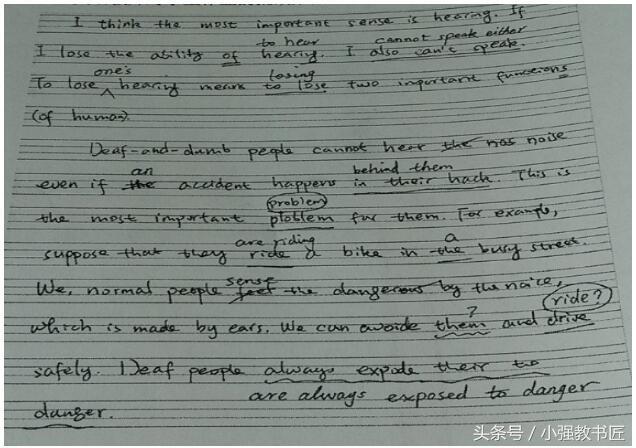 I think the most important sense is hearing. If
to hear cannot speak either
I lose the ability of hearing. I also can't speak.
one's losing
To lose ^ hearing means to lose two important functions
(of human).
Deaf-and-dumb people cannot hear the nos noise
an behind them
even if the accident happens in their back. This is
problem
the most important ploblem for them. For example,
are riding a
suppose that they ride a bike in the busy street.
sense
We, normal people feel the dangerous by the noice,
ride?
which is made by ears. We can avoide them ? and drive
safely. Deaf people always expode their to
are always exposed to danger
danger.
头条号 / 小强教书匠